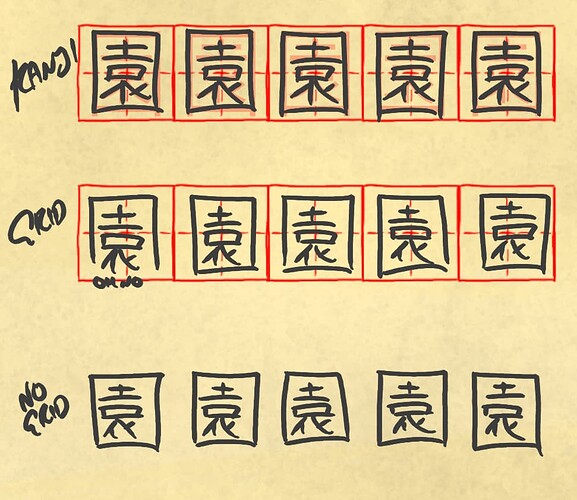 KANJI 園 園 園 園 園
GRID 園 園 園 園 園
OH NO
NO
GRID 園 園 園 園 園